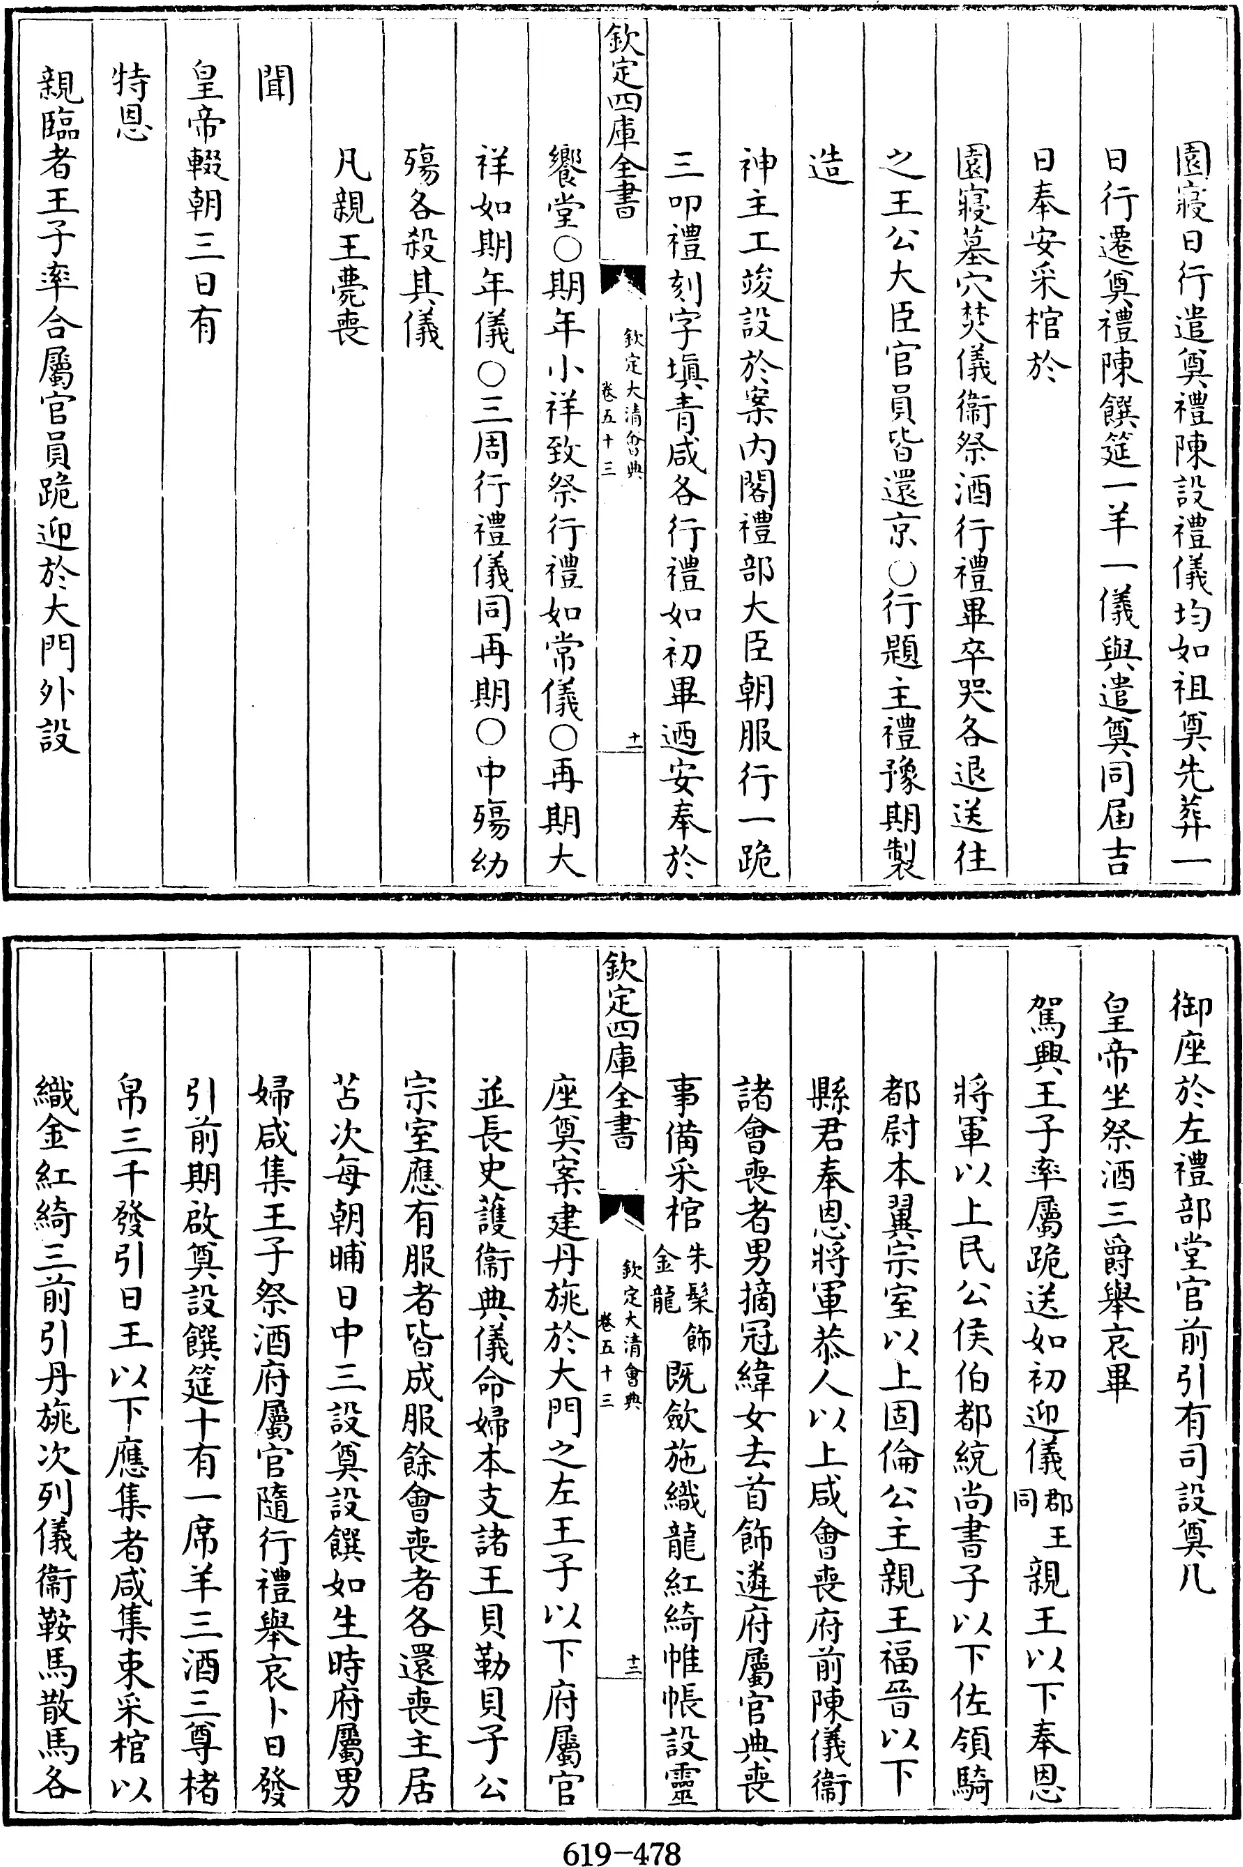 園寢日行遣奠禮陳設禮儀均如祖奠先葬一
日行遷奠禮陳饌筵一羊一儀與遣奠同屆吉
日奉安采棺於
園寢墓穴焚儀衞祭酒行禮畢卒哭各退送往
之王公大臣官員皆還京○行題主禮豫期製
造
神主工竣設於案內閣禮部大臣朝服行一跪
三叩禮刻字塡青咸各行禮如初畢迺安奉於
欽定四庫全書
欽定大清會典
卷五十三
十一
饗堂○期年小祥致祭行禮如常儀○再期大
祥如期年儀○三周行禮儀同再期○中殤幼
殤各殺其儀
凡親王薨喪
聞
皇帝輟朝三日有
特恩
親臨者王子率合屬官員跪迎於大門外設
御座於左禮部堂官前引有司設奠几
皇帝坐祭酒三爵舉哀畢
駕興王子率屬跪送如初迎儀郡王同親王以下奉恩
將軍以上民公侯伯都統尚書子以下佐領騎
都尉本翼宗室以上固倫公主親王福晉以下
縣君奉恩將軍恭人以上咸會喪府前陳儀衞
諸會喪者男摘冠緯女去首飾遴府屬官典喪
事備采棺朱髹飾金龍既斂施織龍紅綺帷帳設靈
欽定四庫全書
欽定大清會典
卷五十三
十二
座奠案建丹旐於大門之左王子以下府屬官
並長史護衞典儀命婦本支諸王貝勒貝子公
宗室應有服者皆成服餘會喪者各還喪主居
苫次每朝晡日中三設奠設饌如生時府屬男
婦咸集王子祭酒府屬官隨行禮舉哀卜日發
引前期啟奠設饌筵十有一席羊三酒三尊楮
帛三千發引日王以下應集者咸集束采棺以
織金紅綺三前引丹旐次列儀衞鞍馬散馬各
619-478